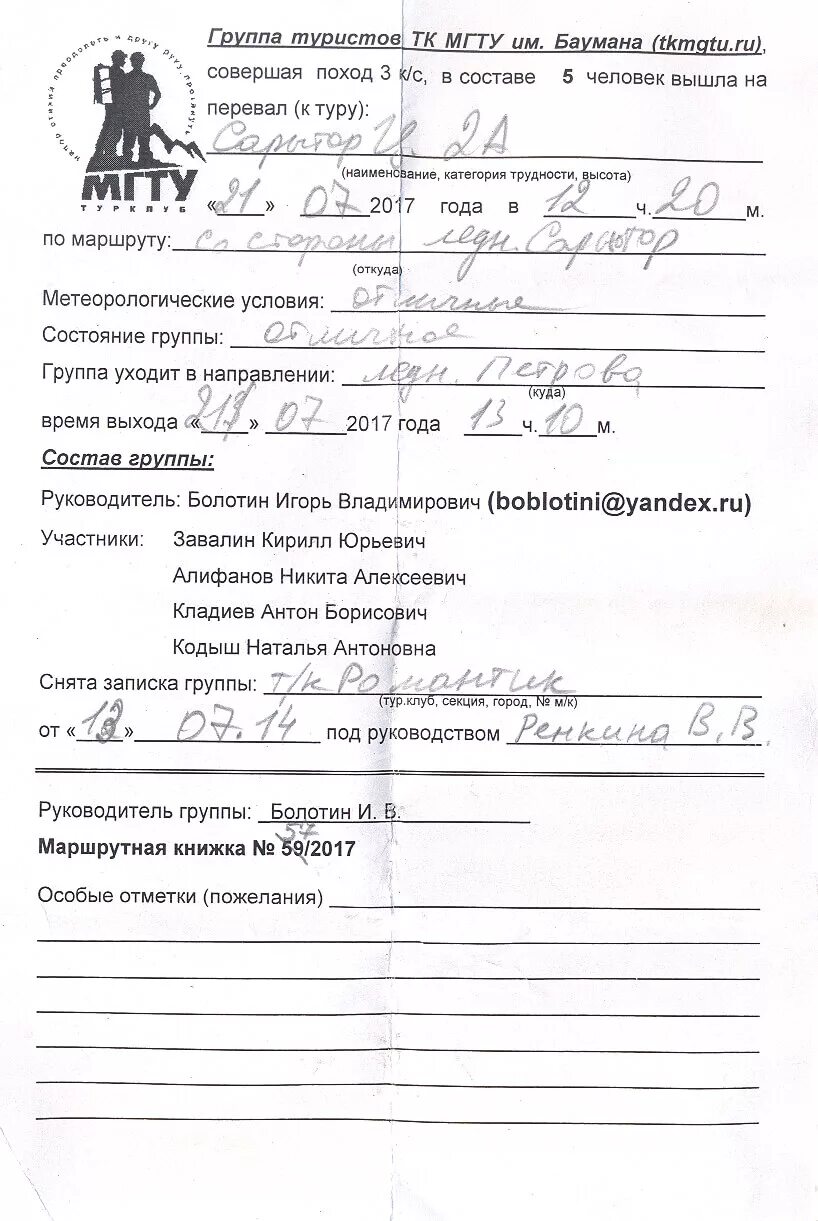 МГТУ
ТУРКЛУБ
Группа туристов ТК МГТУ им. Баумана (tkmgtu.ru),
совершая поход 3 к/с, в составе 5 человек вышла на
перевал (к туру):
Сарытор Ц. 2А
(наименование, категория трудности, высота)
«21» 07 2017 года в 12 ч. 20 м.
по маршруту: со стороны ледн. Сарытор
(откуда)
Метеорологические условия: отличные
Состояние группы: отличное
Группа уходит в направлении: ледн. Петрова
(куда)
время выхода «21» 07 2017 года 13 ч. 10 м.
Состав группы:
Руководитель: Болотин Игорь Владимирович (boblotini@yandex.ru)
Участники: Завалин Кирилл Юрьевич
Алифанов Никита Алексеевич
Кладиев Антон Борисович
Кодыш Наталья Антоновна
Снята записка группы: т/к Романтик
(тур.клуб, секция, город, № м/к)
от « » 07.14 под руководством Ренкина В.В.
Руководитель группы: Болотин И. В.
57
Маршрутная книжка № 59/2017
Особые отметки (пожелания)